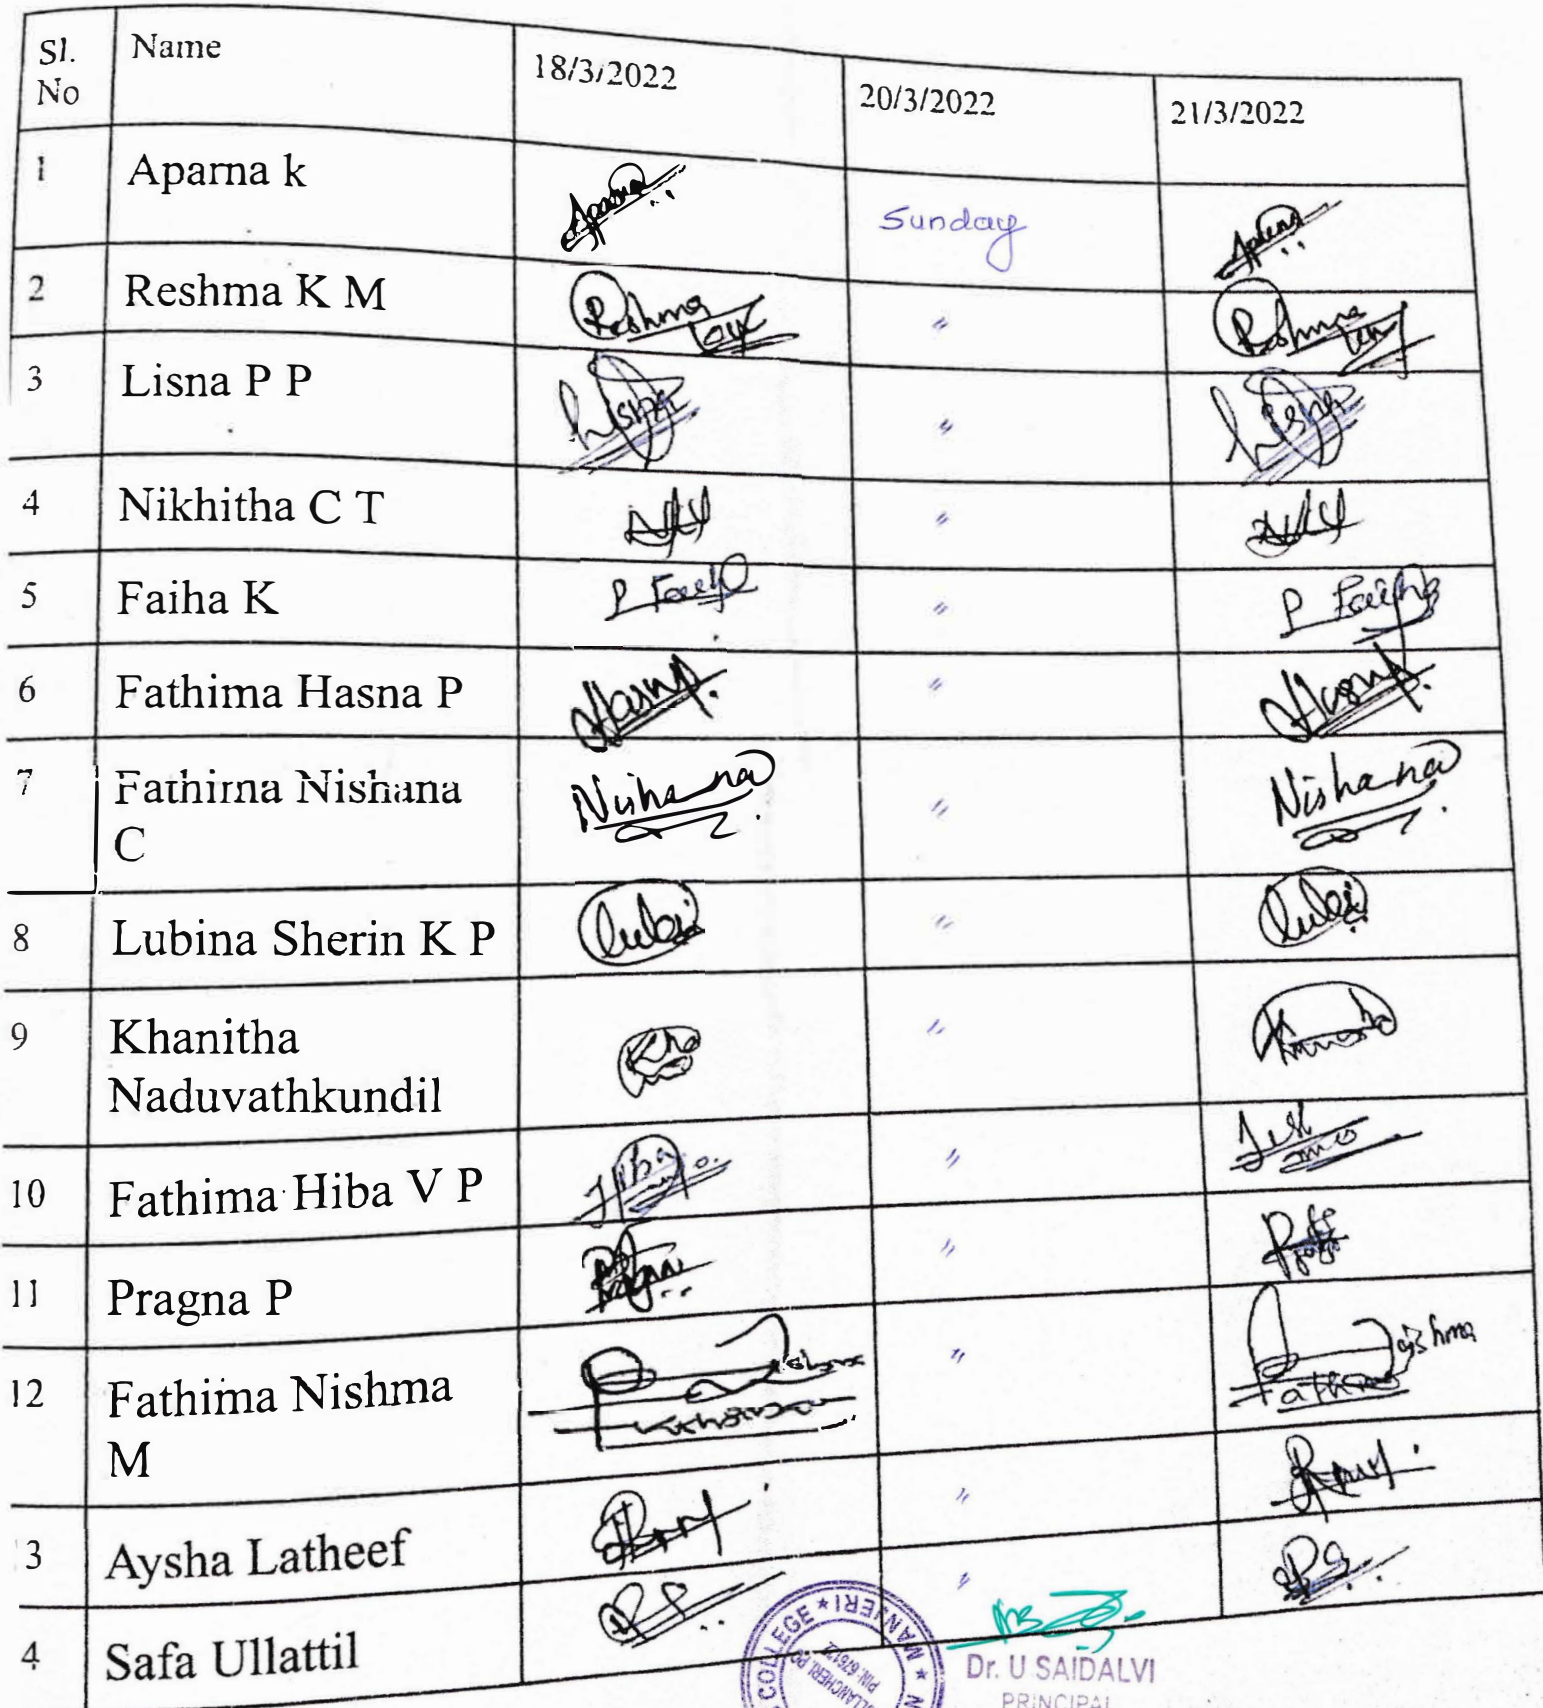 Sl. No Name 18/3/2022 20/3/2022 21/3/2022
1 Aparna k Aparna Sunday Aparna
2 Reshma K M Reshma " Reshma
3 Lisna P P Lisna " Lisna
4 Nikhitha C T "
5 Faiha K "
6 Fathima Hasna P Hasna P. " Hasna P.
7 Fathima Nishana Nishana " Nishana
C
8 Lubina Sherin K P Lubi " Lubi
9 Khanitha "
Naduvathkundil
10 Fathima Hiba V P Hiba "
11 Pragna P "
12 Fathima Nishma "
M
3 Aysha Latheef "
4 Safa Ullattil "
COLLEGE * MANJERI *
Dr. U SAIDALVI
PRINCIPAL